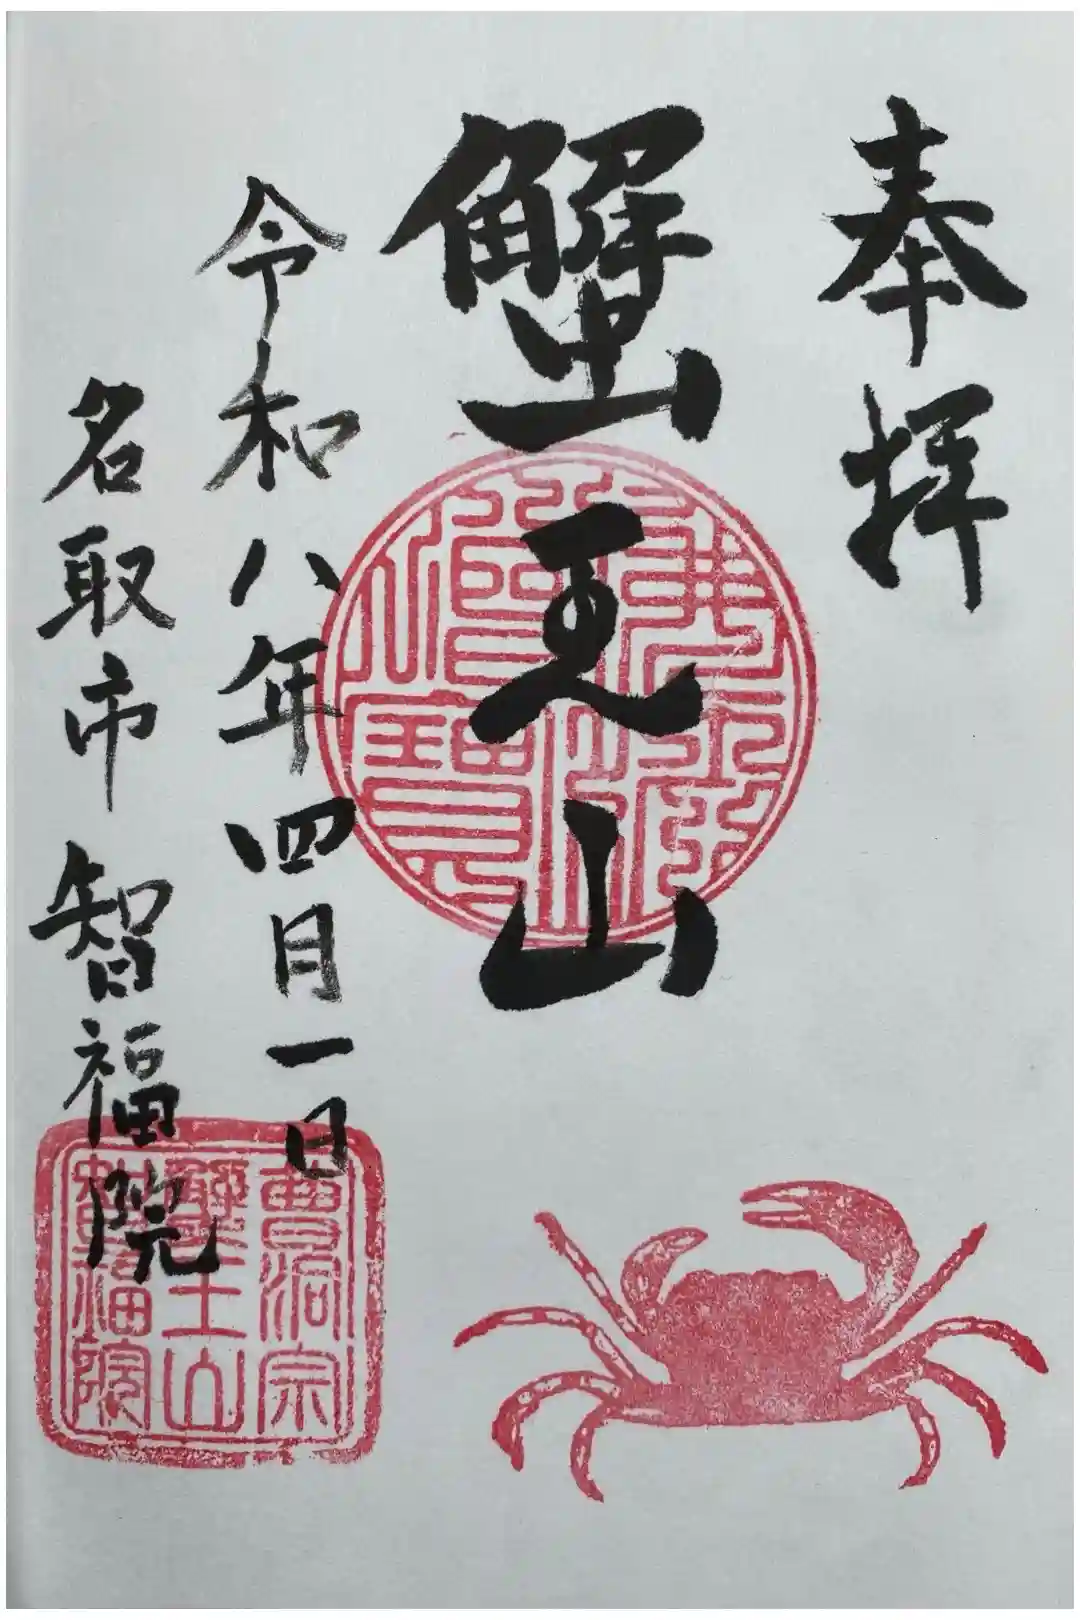 奉拝
蟹王山
令和八年四月一日
名取市 智福院
佛法僧寶
曹洞宗
蟹王山
智福院